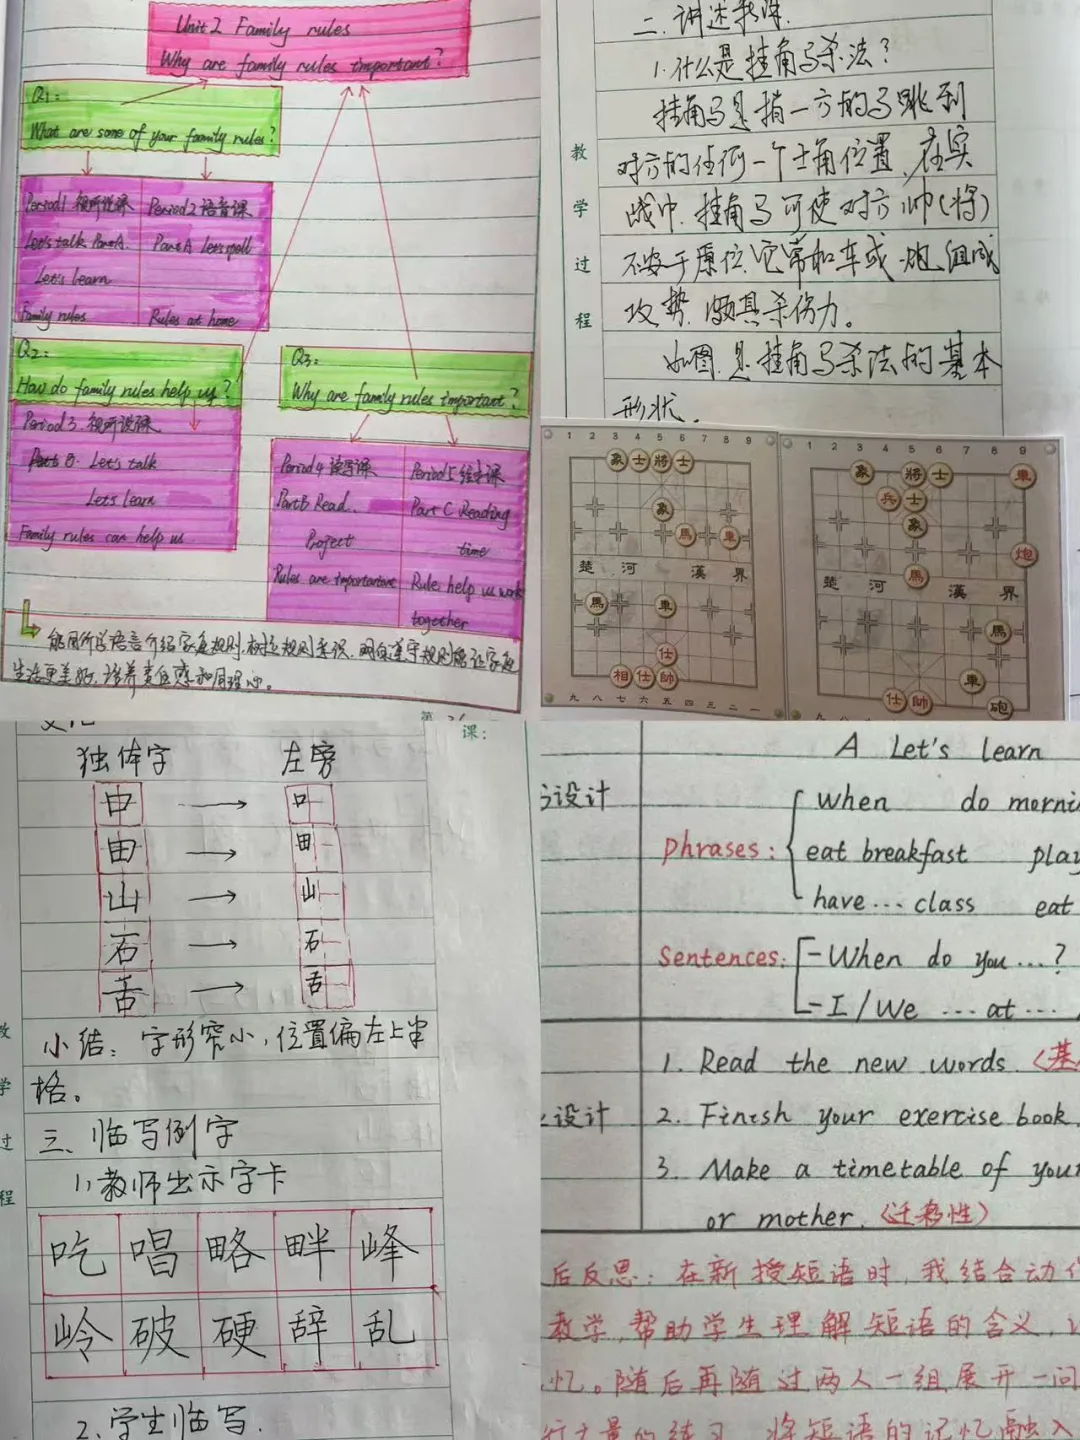 Unit 2 Family rules
Why are family rules important?
Q1:
What are some of your family rules?
Period1 视听说课
Let's talk PartA.
Let's learn
Family rules
Period2 语音课
PartA Let's spell
Rules at home
Q2:
How do family rules help us?
Period3 视听说课
Part B. Let's talk
Let's learn
Family rules can help us
Q3:
Why are family rules important?
Period4 读写课
PartB Read.
Project
Rules are importantant
Period5 绘本课
Part C Reading
time
Rule help us work
together
能用所学语言介绍家庭规则,树立规则意识,明白遵守规则能让家庭
生活更美好,培养责任感和同理心。
二、讲述新课.
1.什么是挂角马杀法?
挂角马是指一方的马跳到
对方的任何一个士角位置,在实
战中,挂角马可使对方帅(将)
不安于原位,它常和车或炮组成
攻势,颇具杀伤力。
如图,是挂角马杀法的基本
形状.
教
学
过
程
1 2 3 4 5 6 7 8 9
象 士 將 士
象
馬 車
楚 河 漢 界
馬 車
仕
相 仕 帥
九 八 七 六 五 四 三 二 一
1 2 3 4 5 6 7 8 9
象 將 士 車
兵 士
象
炮
馬
楚 河 漢 界
馬
車
仕 帥 砲
课:
独体字 左旁
申 → 口
由 → 田
山 → 山
石 → 石
舌 → 舌
小结:字形窄小,位置偏左上半
格。
三、临写例字
1,教师出示字卡
吃 唱 略 畔 峰
岭 破 硬 辞 乱
2.学生临写.
教
学
过
程
A Let's learn
设计
Phrases:
when do morni
eat breakfast play
have … class eat
Sentences:
-When do you …?
-I / We … at …
设计
1. Read the new words.
2. Finish your exercise book.
3. Make a timetable of your
or mother. (迁移性)
后反思:在新授短语时,我结合动作
教学,帮助学生理解短语的含义,
忆。随后再随过两人一组,展开一问
的练习,将短语的记忆融入